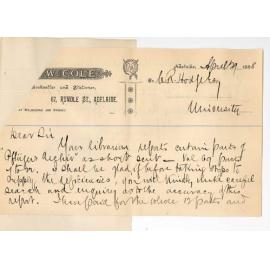 W. C. COLE,
Bookseller and Stationer,
67, RUNDLE ST., ADELAIDE.
AT MELBOURNE AND SYDNEY
Adelaide, April 29 1888
Mr. C. R. Hodge
University
Dear Sir
Your librarian reports certain parts of
as short sent
I shall be glad if before taking steps to
supply the deficiencies, you will kindly make careful
search and enquiry as to the accuracy of this
report. I have paid for the whole 12 parts and